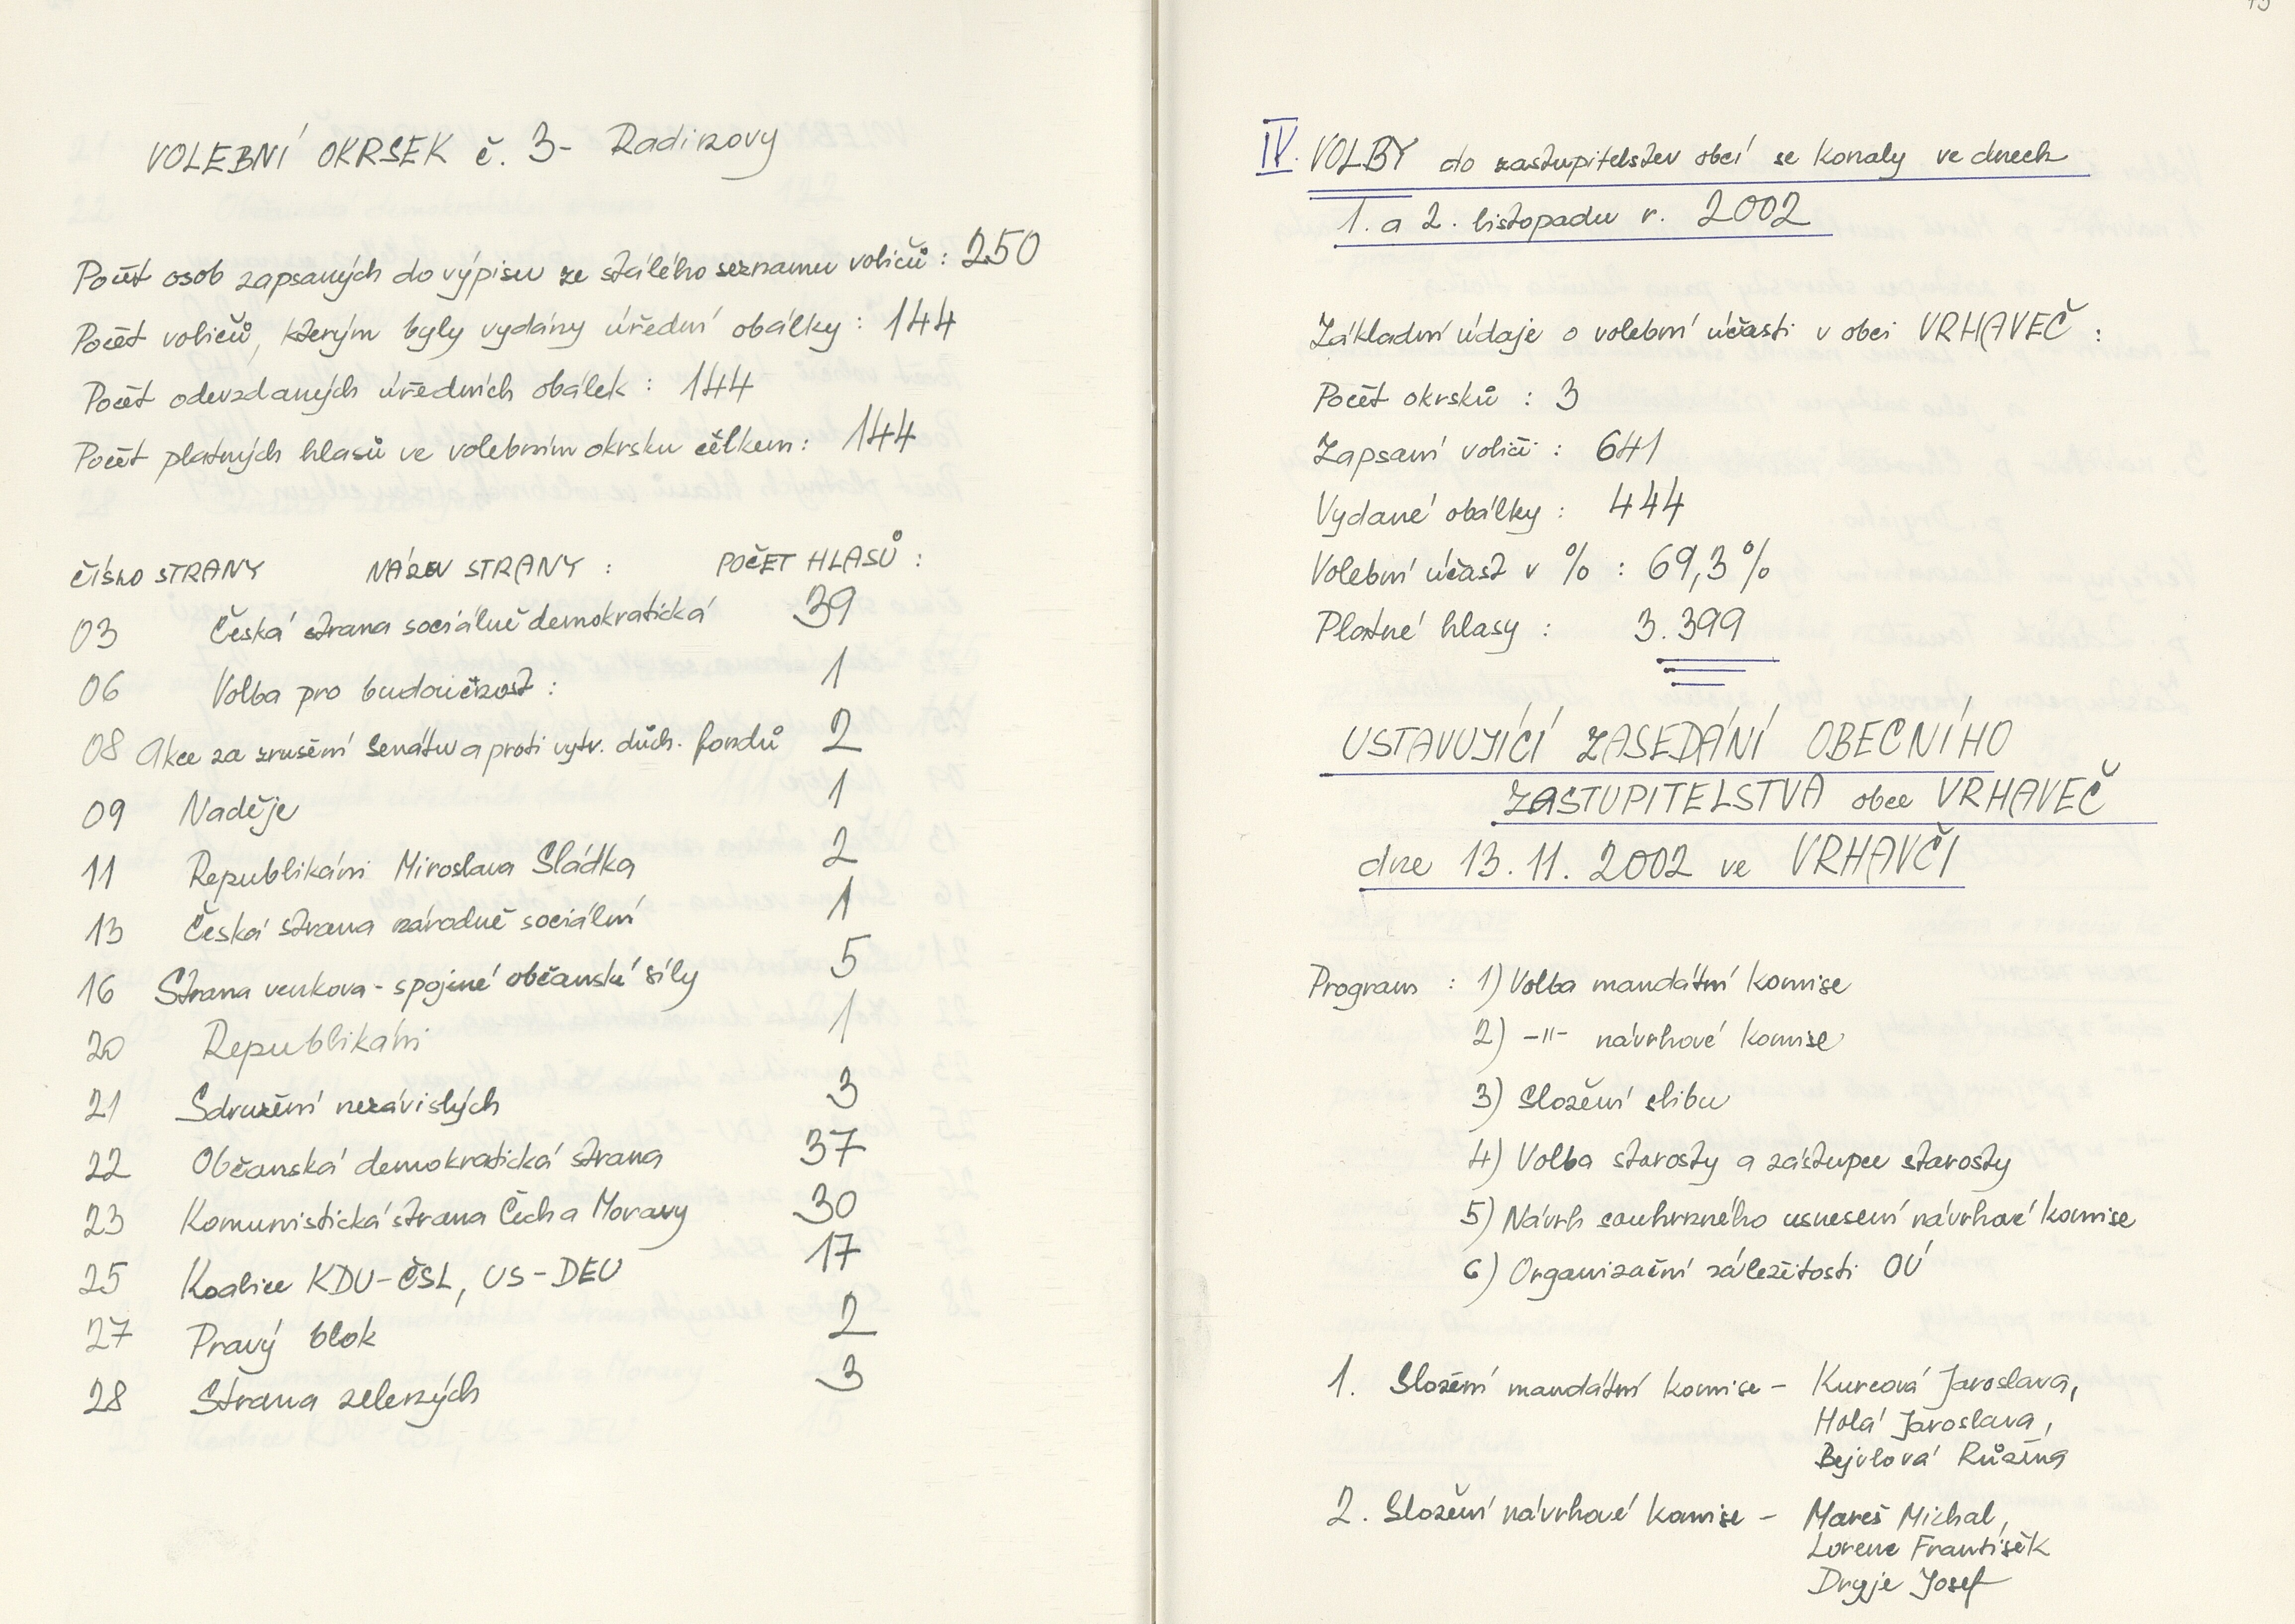 VOLEBNÍ OKRSEK č. 3- Radinovy
Počet osob zapsaných do výpisu ze stálého seznamu voličů: 250
Počet voličů, kterým byly vydány úřední obálky: 144
Počet odevzdaných úředních obálek: 144
Počet platných hlasů ve volebním okrsku celkem: 144
ČÍSLO STRANY NÁZEV STRANY: POČET HLASŮ:
03 Česká strana sociálně demokratická 39
06 Volba pro budoucnost: 1
08 Akce za zrušení Senátu a proti vytv. důch. fondů 2
09 Naděje 1
11 Republikáni Miroslava Sládka 2
13 Česká strana národně sociální 1
16 Strana venkova - spojené občanské síly 5
20 Republikáni 1
21 Sdružení nezávislých 3
22 Občanská demokratická strana 37
23 Komunistická strana Čech a Moravy 30
25 Koalice KDU-ČSL, US-DEU 17
27 Pravý blok 2
28 Strana zelených 3
IV. VOLBY do zastupitelstev obcí se konaly ve dnech
1. a 2. listopadu r. 2002
Základní údaje o volební účasti v obci VRHAVEČ:
Počet okrsků: 3
Zapsaní voliči: 641
Vydané obálky: 444
Volební účast v %: 69,3%
Platné hlasy: 3.399
USTAVUJÍCÍ ZASEDÁNÍ OBECNÍHO
ZASTUPITELSTVA obce VRHAVEČ
dne 13.11.2002 ve VRHAVČI
Program: 1) Volba mandátní komise
2) -"- návrhové komise
3) Složení slibu
4) Volba starosty a zástupce starosty
5) Návrh souhrnného usnesení návrhové komise
6) Organizační záležitosti OÚ
1. Složení mandátní komise - Kurcová Jaroslava,
Holá Jaroslava,
Bejvlová Růžena
2. Složení návrhové komise - Mareš Michal,
Lorenc František
Dryje Josef